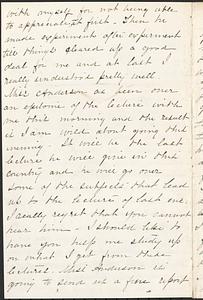 with myself for not being able
to appreciate it first. Then he
made experiment after experiment
till things cleared up a good
deal for me and at last I
really understood pretty well.
Miss Anderson has been over
an epitome of the lecture with
me this morning and the result
is I am wild about going this
evening. It will be the last
lecture he will give in this
country and he will go over
some of the subjects that lead
up to the lecture of last eve.
I really regret that you cannot
hear him - I should like to
have you help me study up
on what I get from these
lectures. Miss Anderson is
going to send us a fine report